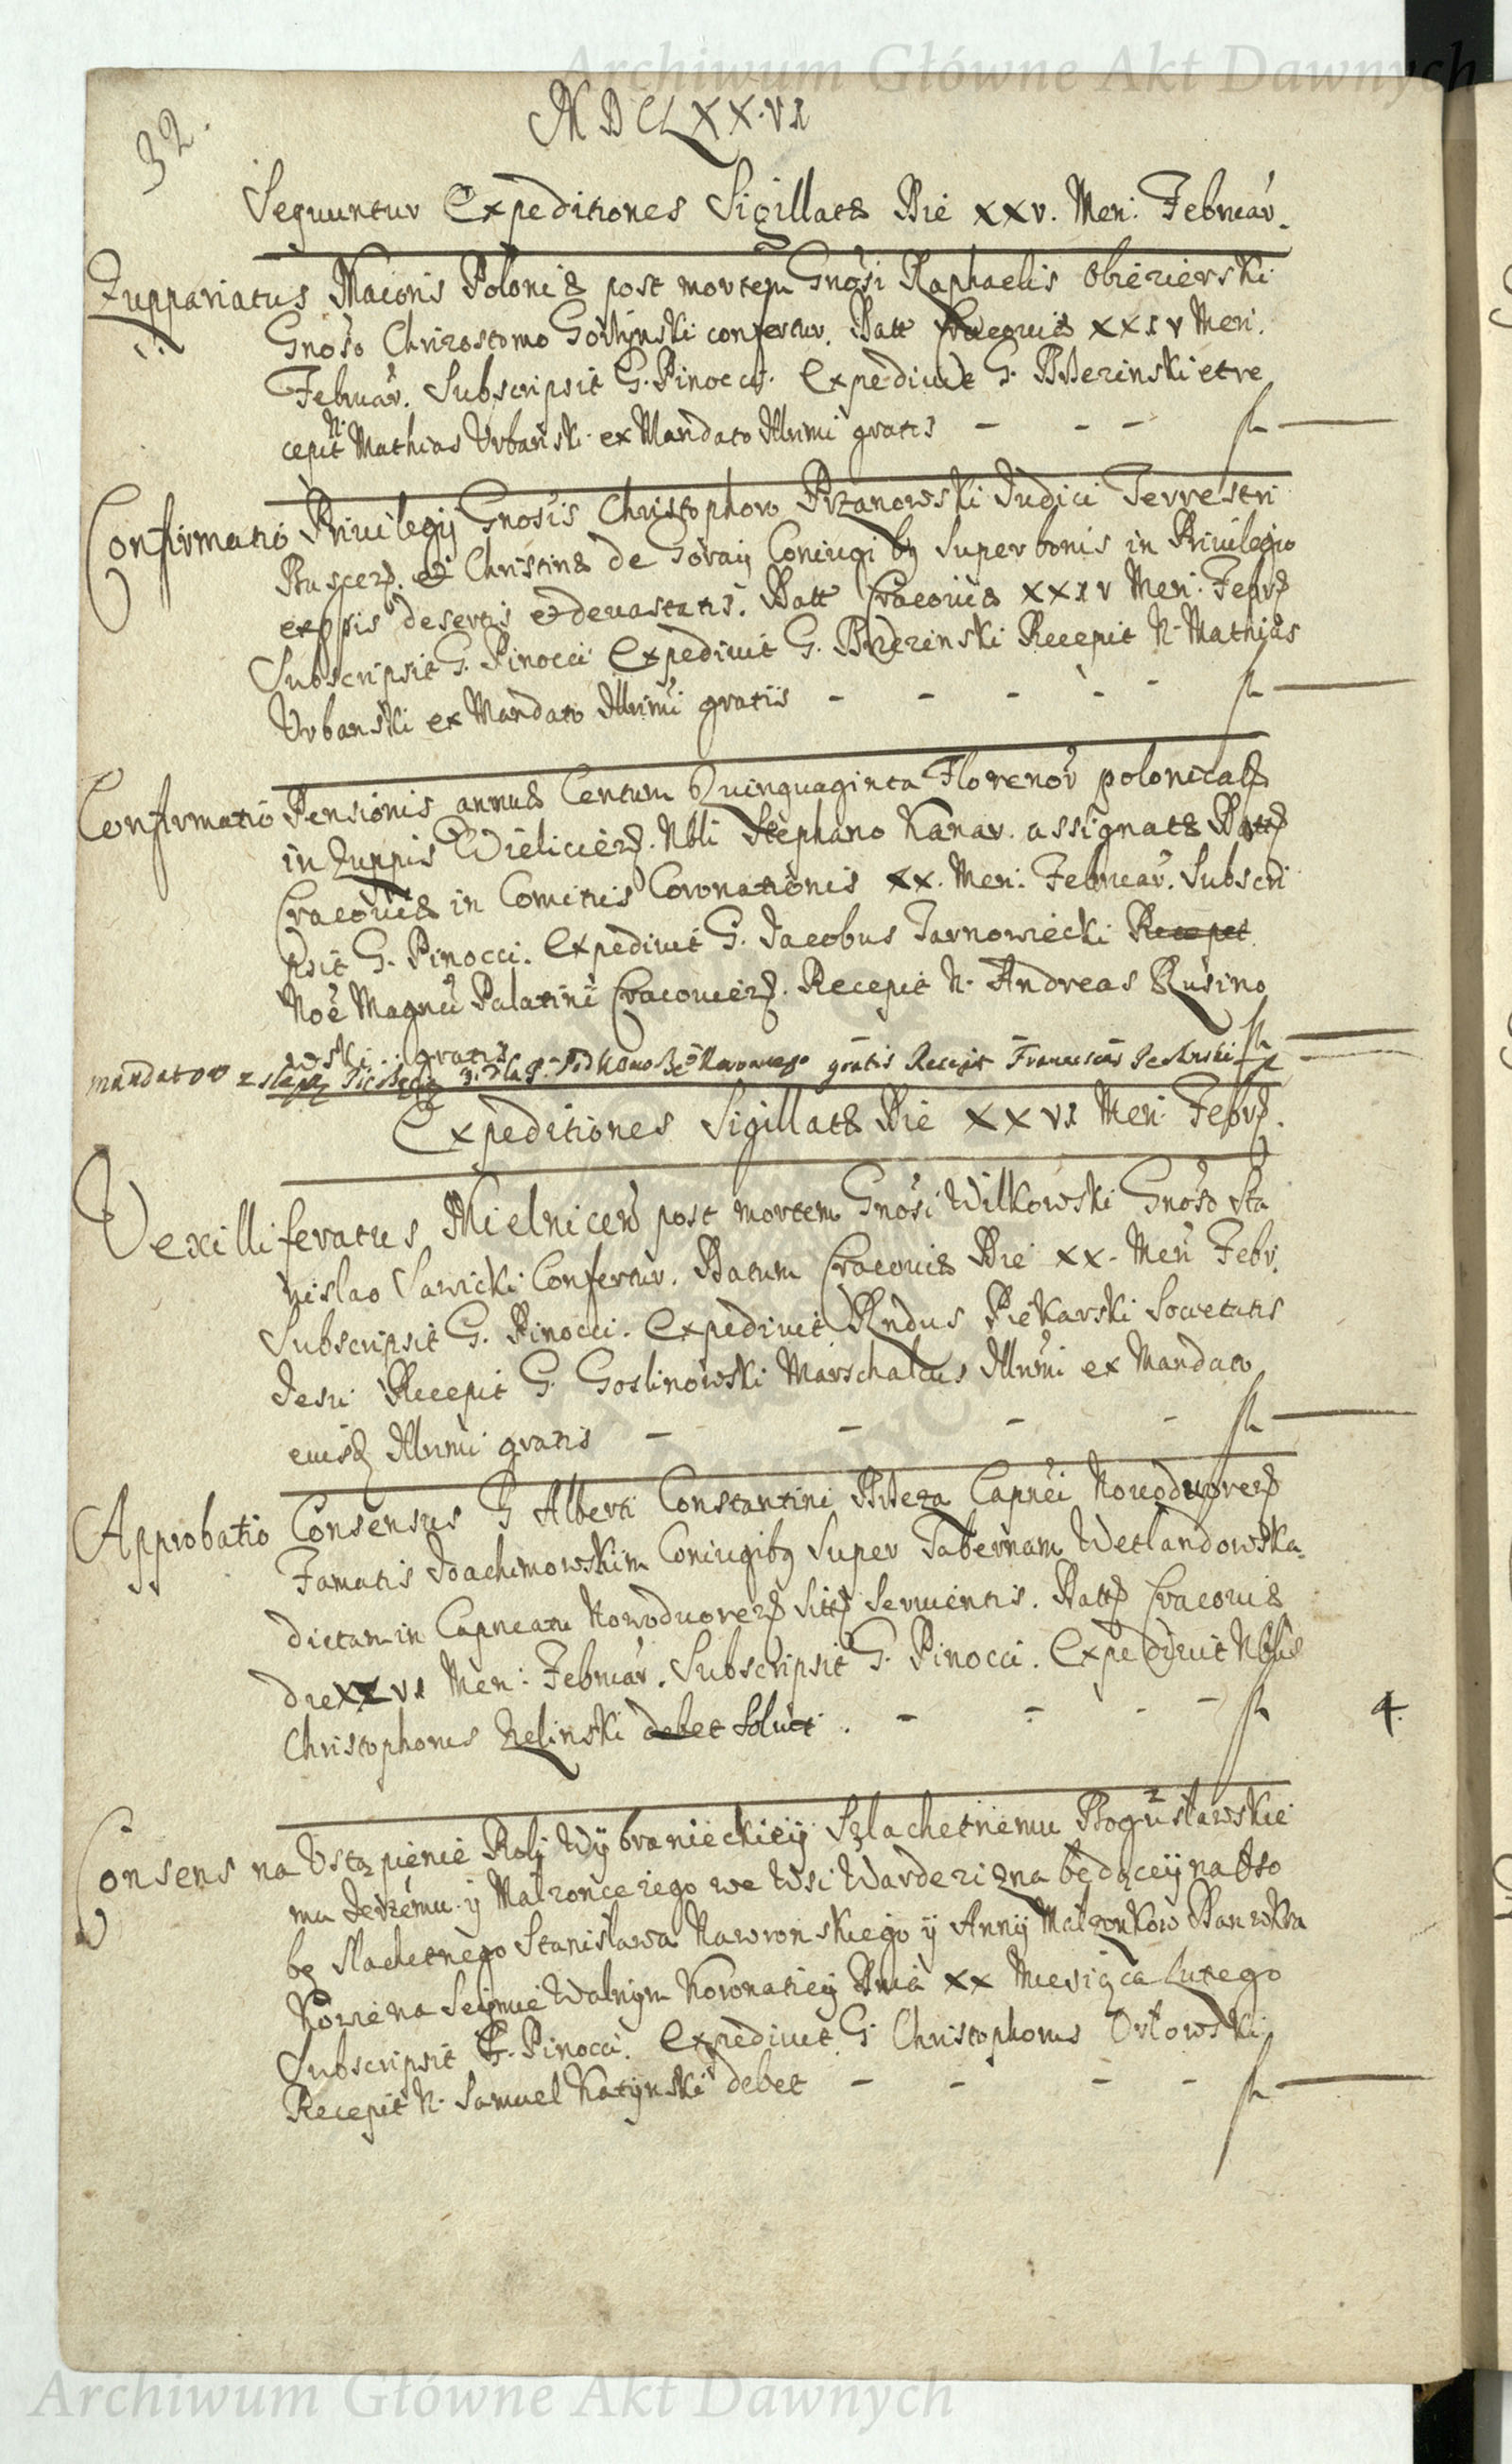 Archiwum Główne Akt Dawnych
32.
MDCLXXVI
Sequuntur Expeditiones Sigillatae Die XXV. Men: Februar.
Zuppariatus Maioris Poloniae post mortem Gnosi Raphaelis Obiezierski
Gnoso Chrizostomo Gorzynski confertur. Datt Cracoviae XXIV Men:
Februar. Subscripsit G. Pinocci. Expedivit G. Brzezinski et re
cepit N. Mathias Urbanski ex Mandato Illrimi gratis - - - fl —
Confirmatio Privilegij Gnosis Christophoro Przanowski Iudici Terrestri
et Christinae de Goray Coniugibq super bonis in Privilegio
exppis desertis et devastatis. Datt Cracoviae XXIV Men: Febr
Subscripsit G. Pinocci Expedivit G. Brzezinski Recepit N. Mathias
Urbanski ex Mandato Illrimi gratis - - - - - fl —
Confirmatio Pensionis annuae Centum Quinquaginta Florenor polonical
in Zuppis Wielicien. Nbli Stephano Kanav. assignatae Datt
Cracoviae in Comitiis Coronationis XX. Men: Februar. Subscri
psit G. Pinocci. Expedivit G. Jacobus Tarnowiecki Recepit
Noe Magnci Palatini Cracovien. Recepit N. Andreas Rusino
wski .. gratis fl —
mandatow z gratis Recepit Franciscus fl —
Expeditiones Sigillatae Die XXVI Men: Febr.
Vexilliferatus Mielnicen post mortem Gnosi Wilkowski Gnoso Sta
nislao Sawicki Confertur. Datum Cracoviae Die XX. Men Febr.
Subscripsit G. Pinocci. Expedivit Rndus Piekarski Societatis
Jesu Recepit G. Goslinowski Marschalcus Illrimi ex Mandato
eiusq Illrimi gratis - - - - fl —
Approbatio Consensus G Alberti Constantini Breza Capnei Novodvoren
Famatis Joachimowskim Coniugibq super Tabernam Wetlandowska
dictam in Capneatu Nowodvoren sitt servientis. Datt Cracoviae
die XXVI Men: Februar. Subscripsit G. Pinocci. Expedivit Nblis
Christophorus Zelinski debet Soluit. - - - - fl 4.
Consens na Ustąpienie Roli Wybranieckiey Szlachetnemu Bogusławskie
mu Jerzemu y Małzonce iego we Wsi będącey na Oso
bę Slachetnego Stanisława Nawronskiego y Anny Małzonkow Dan w Kra
kowie na Seymie Walnym Koronatiey Dnia XX Miesiąca Lutego
Subscripsit G. Pinocci. Expedivit G. Christophorus Orłowski
Recepit N. Samuel Katynski debet - - - - fl —
Archiwum Główne Akt Dawnych